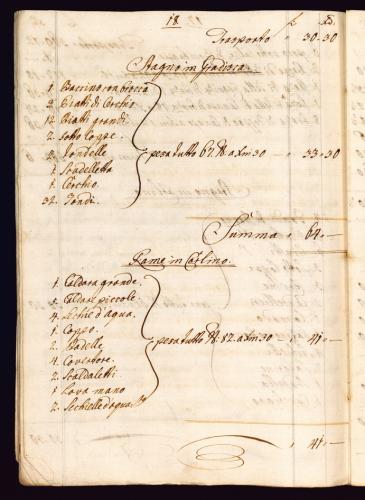 18
Trasporto 30-30
Stagno in Gradisca.
1. Baccino con brocca
2. Piatti di Cerchio
12. Piatti grandi.
2. Sotto coppe.
2. Tondelle
1. Scudelletta
1. Cerchio.
32. Tondi.
pesa tutto 67. lb. a Xm 30 33-30
Summa 64.-
Rame in
1. Caldara grande.
5. Caldare piccole.
4. Sechie d'aqua.
1. Coppo.
2. Padelle.
4. Covertore.
2. Scaldaletti.
1 Lava mano
2. Sechielle d'aqua
pesa tutto lb. 82. a Xm 30 41.-
41.-